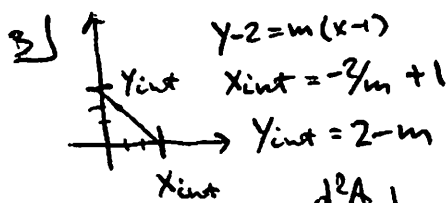 3)
y-2=m(x-1)
Yint
Xint = -2/m + 1
Yint = 2-m
Xint